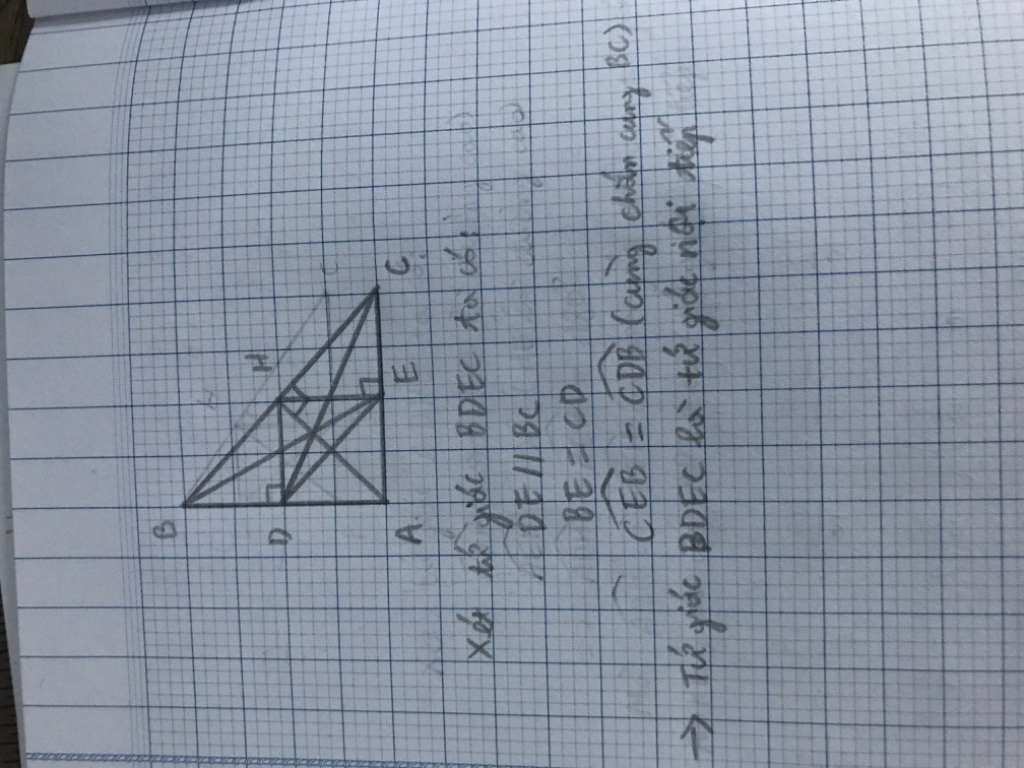 B
H
D
A
E
C
Xét tứ giác BDEC ta có:
DE // BC
BE = CD
CEB = CDB (cùng chắn cung BC)
→ Tứ giác BDEC là tứ giác nội tiếp